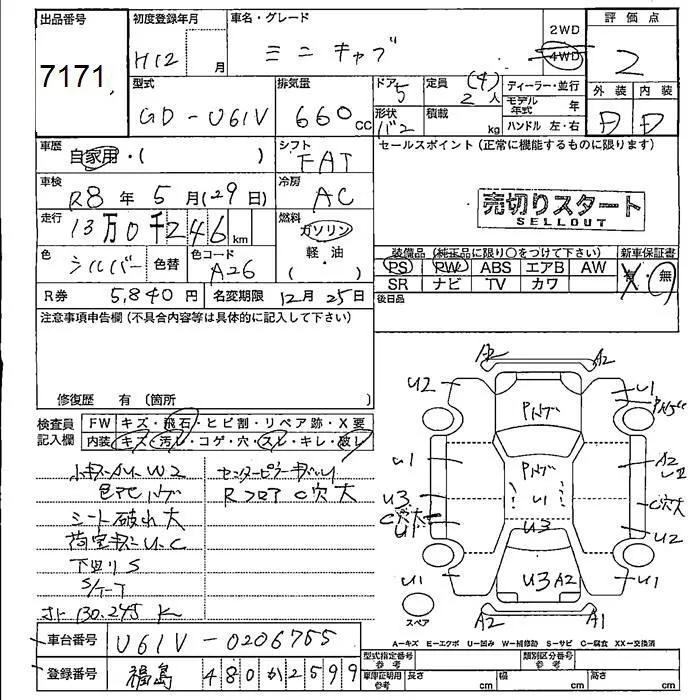 出品番号 初度登録年月 車名・グレード 評価点
7171 H12 月 ミニキャブ 2WD 4WD 2
型式 排気量 ドア 定員 (4) ディーラー・並行 外装 内装
GD-U61V 660 cc 5 2人 モデル年式 年 D D
形状 積載 バン kg ハンドル 左・右
車歴 シフト セールスポイント (正常に機能するものに限ります)
自家用・( ) FAT
車検 冷房
R8年 5月(29日) AC 売切りスタート
SELLOUT
走行 燃料
13万0千246km ガソリン
色 色替 色コード 軽・油 装備品 (純正品に限り○をつけて下さい) 新車保証書
シルバー A26 ( ) PS PW ABS エアB AW 有・無
SR ナビ TV カワ
R券 5,840円 名変期限 12月25日 後日品
注意事項申告欄 (不具合内容等は具体的に記入して下さい)
修復歴 有 (箇所
検査員 FW キズ・飛石・ヒビ割・リペア跡・X要
記入欄 内装 キズ・汚レ・コゲ・穴・スレ・キレ・破レ
小キズAU W2
色アセ ハゲ R フロア C穴大
シート破れ大
荷室キズU.C
下回りS
S/T-T
メーター 130.245K
A2 A2
U2 U1
Pハゲ Pハゲ
U1 Pハゲ A2
U2
U3 U1 C穴大
C穴大
U1 U3 U2
U1 U3 A2 U1
スペア A2 A1
A―キズ E―エクボ U―凹み W―補修跡 S―サビ C―腐食 XX―交換済
車台番号 U61V-0206755
型式指定番号 参考 類別区分番号 参考
登録番号 福島 480か2599
車庫証明用 参考 長さ cm 幅 cm 高さ cm